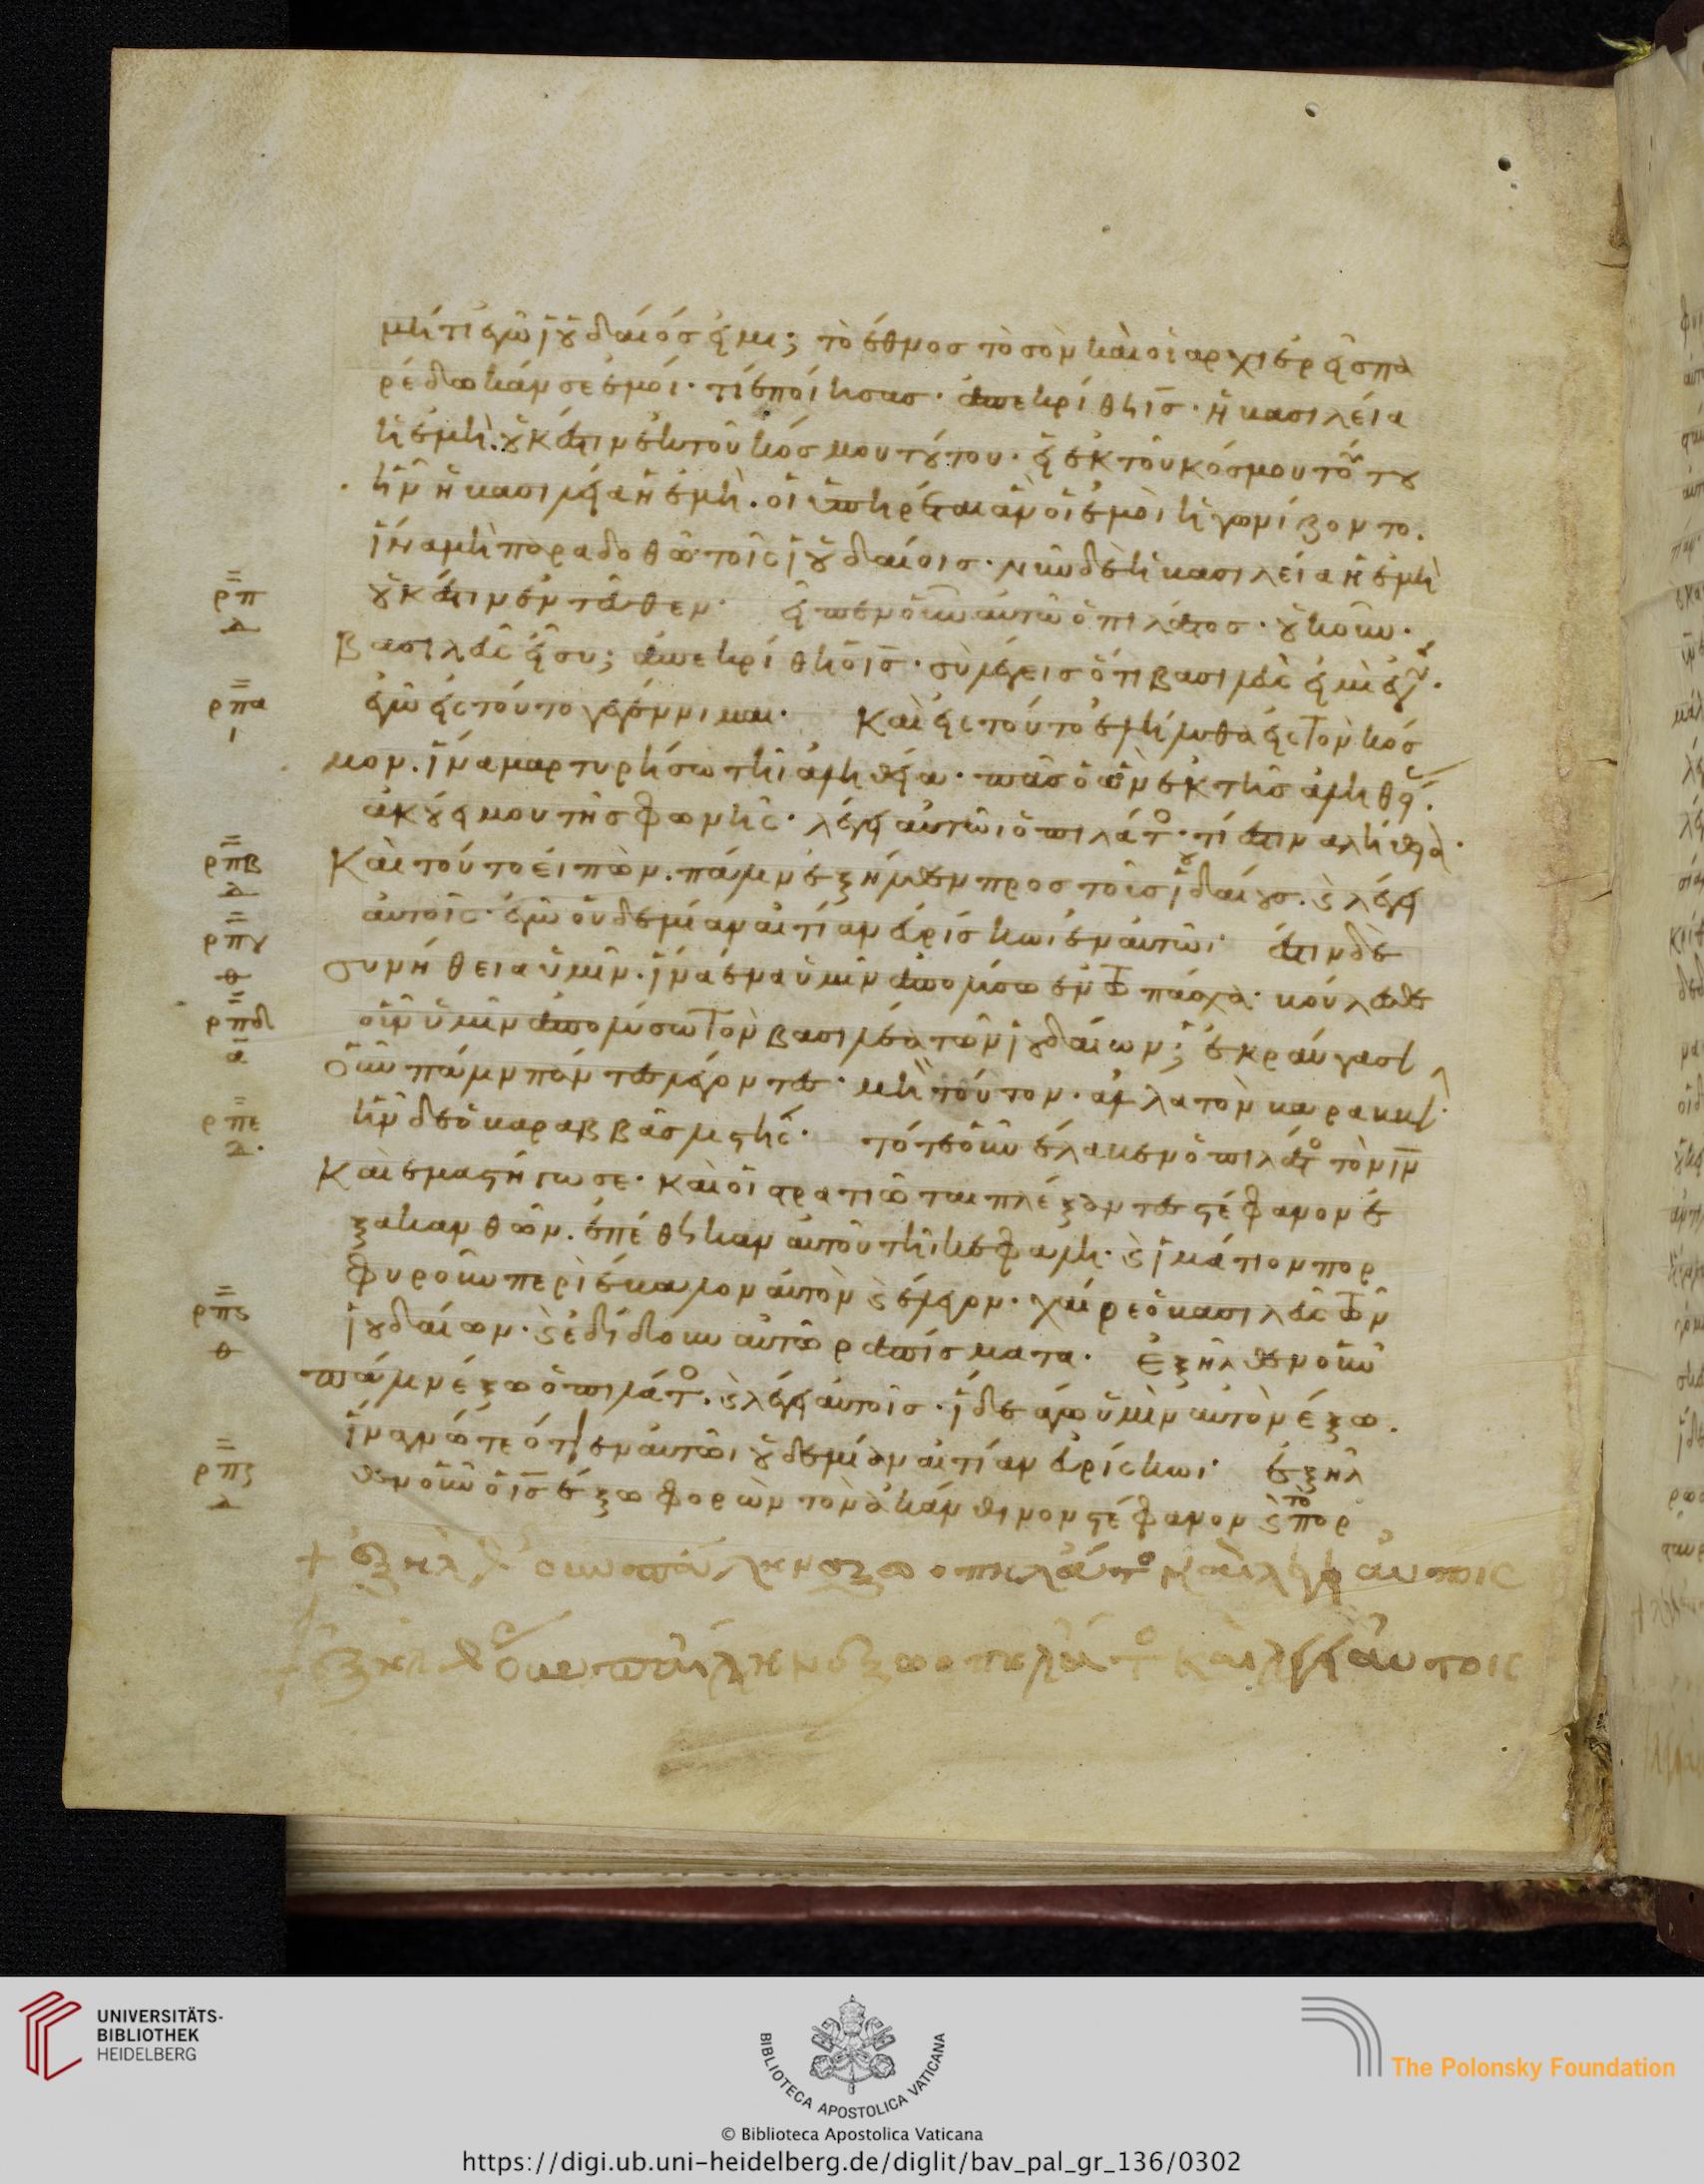 μήτι ἐγὼ ἰουδαῖός εἰμι; τὸ ἔθνος τὸ σὸν καὶ οἱ αρχιερεῖς πα
ρέδωκάν σε ἐμοί· τί ἐποίησας· ἀπεκρίθη ισ· ἡ βασιλεία
ἡ ἐμὴ· οὐκ ἔστιν ἐκ τοῦ κόσμου τούτου· εἰ ἐκ τοῦ κόσμου τούτου
ἦν ἡ βασιλεία ἡ ἐμὴ· οἱ ὑπηρέται ἂν οἱ ἐμοὶ ἠγωνίζοντο·
ἵνα μὴ παραδοθῶ τοῖς ἰουδαίοις· νῦν δὲ ἡ βασιλεία ἡ ἐμὴ
οὐκ ἔστιν ἐντεῦθεν· εἶπεν οὖν αὐτῶ ὁ πιλάτος· οὐκοῦν·
βασιλεὺς εἶ συ; ἀπεκρίθη ὁ ισ· σὺ λέγεις ὅτι βασιλεὺς εἰμὶ ἐγώ·
ἐγὼ εἰς τοῦτο γεγέννημαι· Καὶ εἰς τοῦτο ἐλήλυθα εἰς τὸν κόσ
μον· ἵνα μαρτυρήσω τῆι ἀληθεία· πᾶς ὁ ὢν ἐκ τῆς ἀληθεί
ἀκούει μου τῆς φωνῆς· λέγει αὐτῶι ὁ πιλάτο· τί ἐστιν αλήθεια·
Καὶ τοῦτο εἰπὼν· πάλιν ἐξῆλθεν προς τοὺς ἰουδαίους· ϗ λέγει
αὐτοῖς· ἐγὼ οὐδεμίαν αἰτίαν εὑρίσκωι ἐν αὐτῶι· ἔστιν δὲ
συνήθεια ὑμῖν· ἵνα ἕνα ὑμῖν ἀπολύσω ἐν τω πάσχα· βούλεσθε
οὖν ὑμῖν ἀπολύσω τὸν βασιλέα τῶν ἰουδαίων; ἐκραύγασ
οὖν πάλιν πάντες λέγοντες· μὴ τοῦτον· ἀλλα τὸν βαραββ
ἦν δὲ ὁ βαραββᾶς ληστής· τότε οὖν ἔλαβεν ὁ πιλάτο τὸν ιν
Καὶ ἐμαστήγωσε· καὶ οἱ στρατιῶται πλέξαντες στέφανον ἐ
ξ ακανθῶν· ἐπέθηκαν αὐτοῦ τῆι κεφαλῆ· ϗ ἱμάτιον πορ
φυροῦν περιέβαλον αὐτὸν ϗ ἔλεγον· χαίρε ὁ βασιλεὺς τῶν
ἰουδαίων· ϗ ἐδίδουν αὐτῶ ραπίσματα· Εξῆλθεν οὖν
πάλιν ἔξω ὁ πιλάτο· ϗ λέγει αὐτοῖς· ἴδε ἄγω ὑμῖν αὐτὸν ἔξω·
ἵνα γνῶτε ὅτι ἐν αὐτῶι οὐδεμίαν αἰτίαν εὑρίσκωι· ἐξῆλ
θεν οὖν ὁ ισ ἔξω φορῶν τον ἀκάνθινον στέφανον ϗ τὸ πορ
ρπ
δ
ρπα
ι
ρπβ
δ
ρπγ
θ
ρπδ
α
ρπε
δ
ρπς
θ
ρπζ
δ
+ ἐξηλθ ουν πάλην εξω ο πηλάτο καὶ λέγει αυτοις
ἐξηλθ ουν πάλην εξω ο πηλάτο καὶ λέγει αυτοις
UNIVERSITÄTS-
BIBLIOTHEK
HEIDELBERG
BIBLIOTECA APOSTOLICA VATICANA
The Polonsky Foundation
© Biblioteca Apostolica Vaticana
https://digi.ub.uni-heidelberg.de/diglit/bav_pal_gr_136/0302